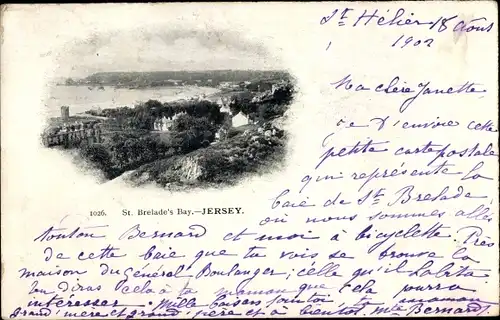 St Hélier 18 Août
1902
Ma chère Janette,
Je t'envoie cette
petite carte postale
qui représente la
baie de St. Brelade
où nous sommes allés
tonton Bernard et moi à bicyclette. Près
de cette baie que tu vois se trouve la
maison du Général Boulanger; celle qu'il habita
tu diras cela à ta maman que cela pourra
intéresser. Mille baisers pour toi, ta maman
grand'mère et grand'père et à bientôt. Bernard.
1026. St. Brelade's Bay.—JERSEY.